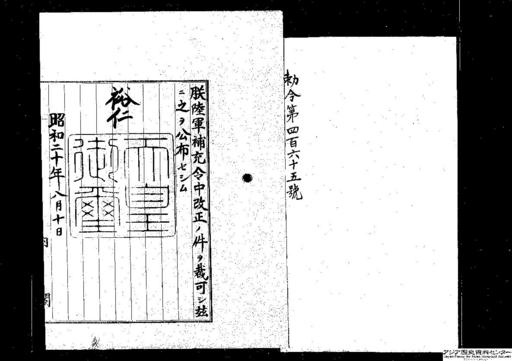 勅令第四百六十五號
朕陸軍補充令中改正ノ件ヲ裁可シ茲
ニ之ヲ公布セシム
裕仁
天皇御璽
昭和二十年八月十日
内閣
アジア歴史資料センター